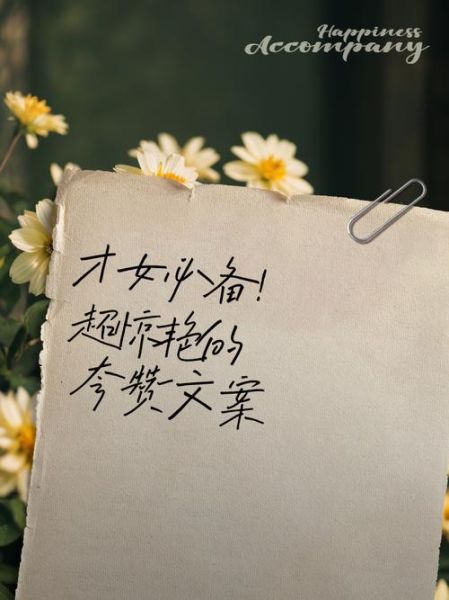 Happiness
Accompany
才女必备!
超惊艳的
夸赞文案